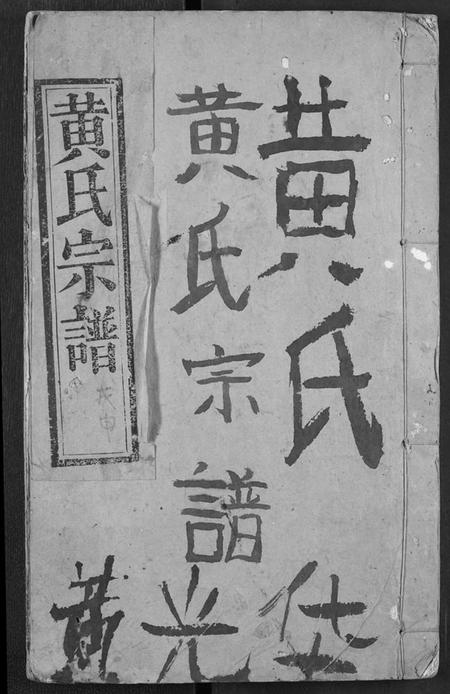 黄氏
黄氏宗譜
黄氏宗譜
戊申
黄光仕